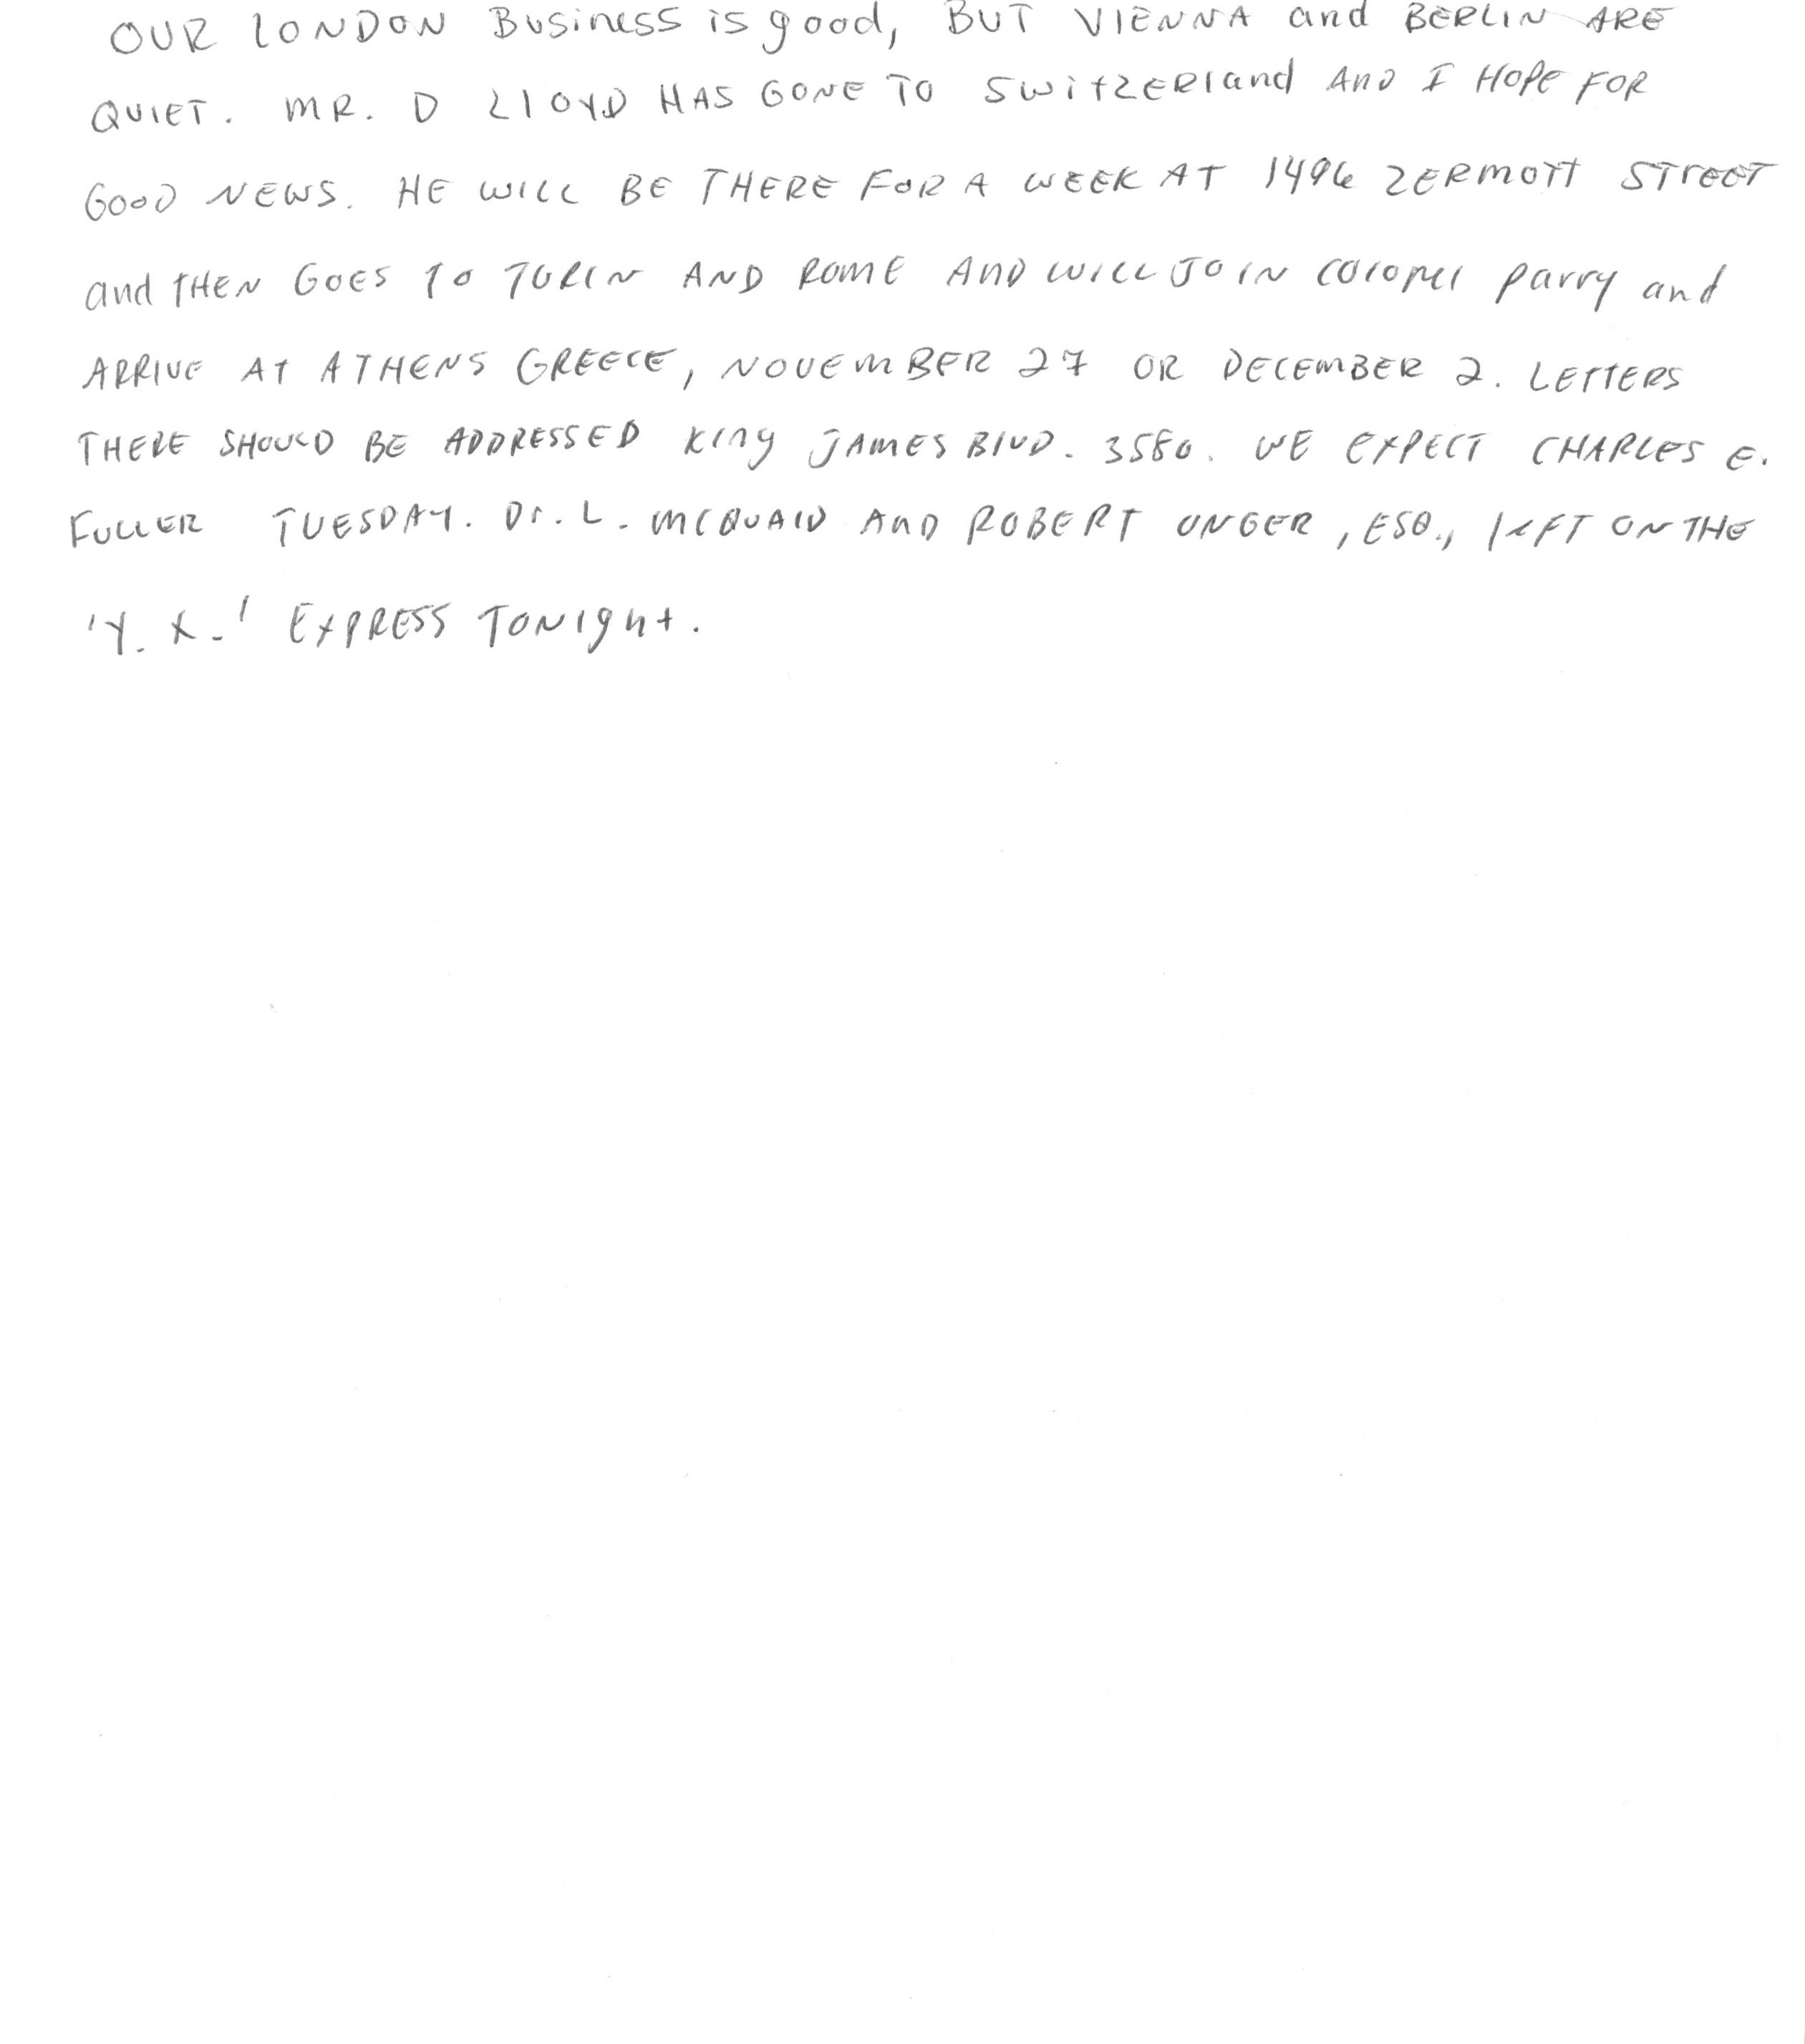 OUR LONDON Business is good, BUT VIENNA and BERLIN ARE
QUIET. MR. D LLOYD HAS GONE TO SWitZERland AND I HOPE FOR
GOOD NEWS. HE WILL BE THERE FOR A WEEK AT 1496 ZERMOTT STreeT
and tHEN GOES TO TURIN AND ROME AND WILL JOIN COlonel Parry and
ARRIVE AT ATHENS GREECE, NOVEMBER 27 OR DECEMBER 2. LETTERS
THERE SHOULD BE ADDRESSED King JAMES Blvd. 3580. WE EXPECT CHARLES E.
FULLER TUESDAY. Dr. L. MCQUAID AND ROBERT UNGER, ESQ., lEFT ON THE
'Y. X.' EXPRESS TONight.